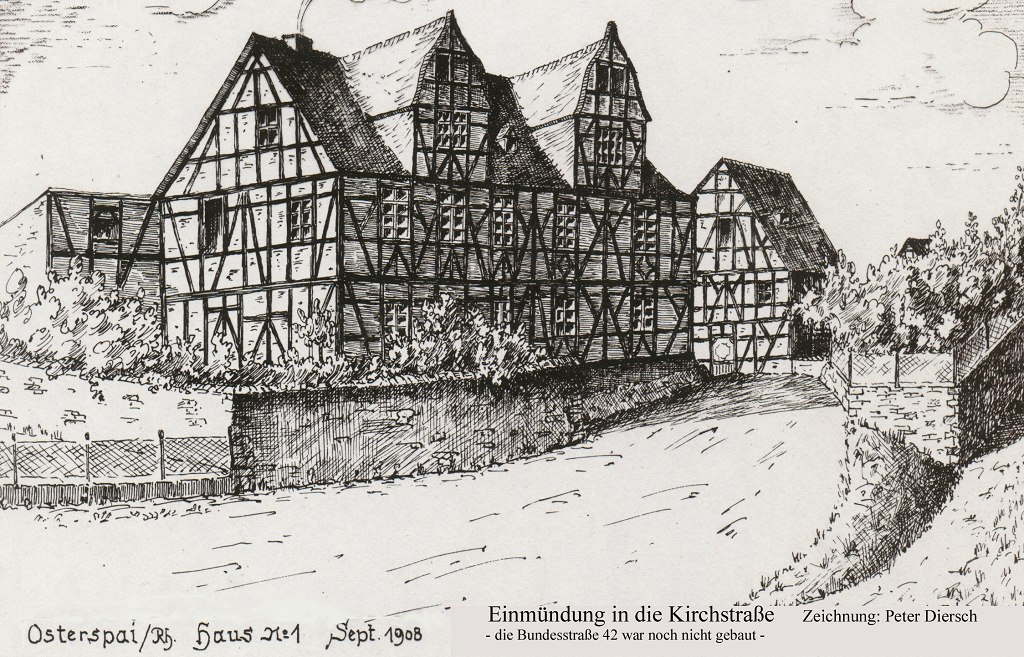 Osterspai/Rh. Haus No 1 Sept. 1908
Einmündung in die Kirchstraße Zeichnung: Peter Diersch
- die Bundesstraße 42 war noch nicht gebaut -